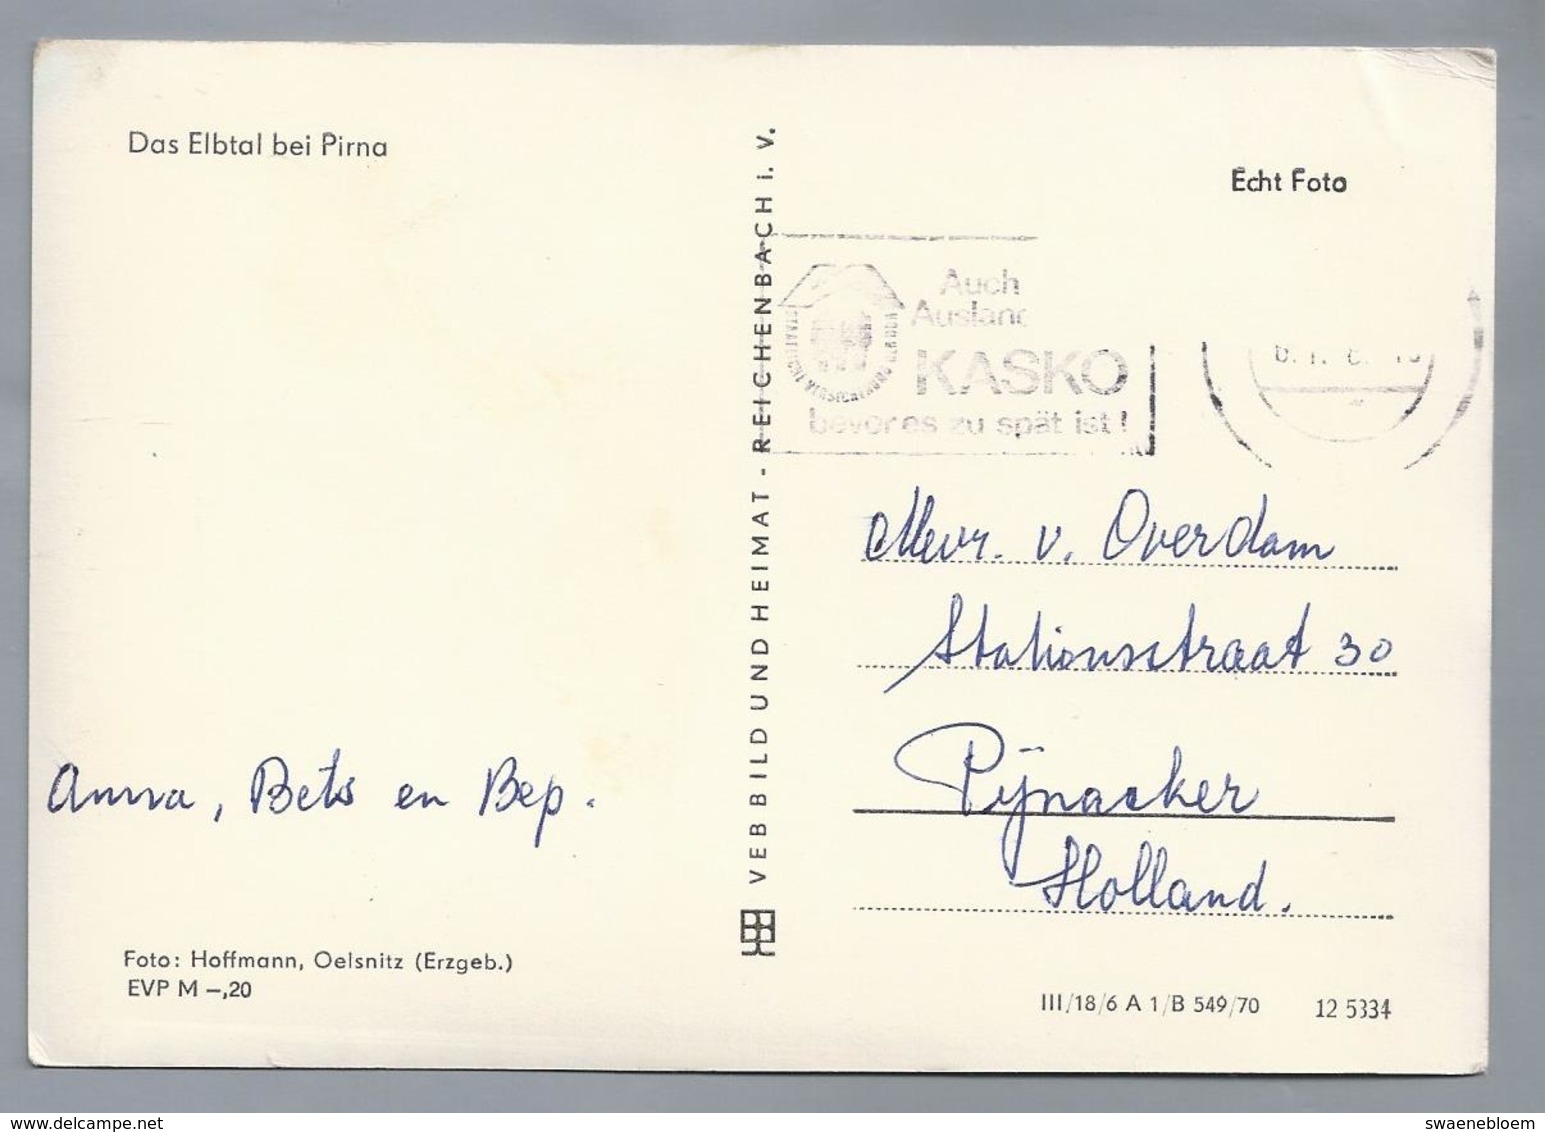 Das Elbtal bei Pirna
Echt Foto
Auch
KASKO
bevor es zu spät ist!
VEB BILD UND HEIMAT - REICHENBACH i. V.
Mevr. v. Overdam
Stationsstraat 30
Pijnacker
Holland.
Anna, Bets en Bep.
Foto: Hoffmann, Oelsnitz (Erzgeb.)
EVP M –,20
III/18/6 A 1/B 549/70 12 5334
delcampe.net
swaenebloem